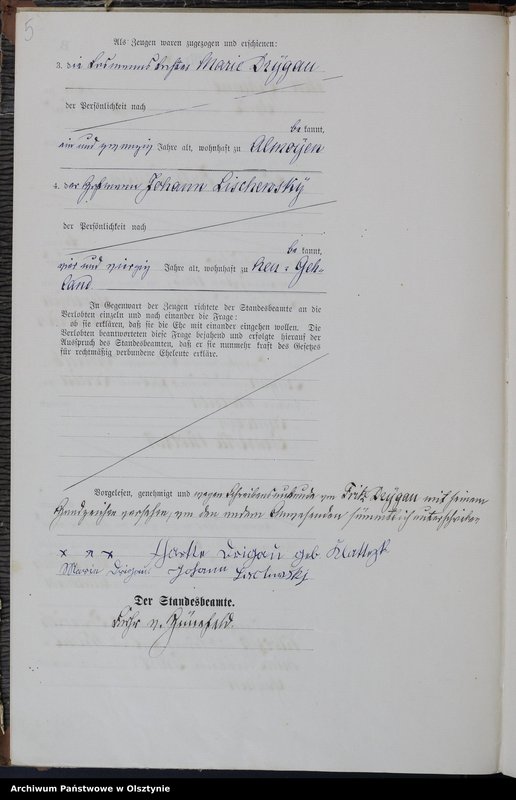 5
Als Zeugen waren zugezogen und erschienen:
3. die Losmannstochter Marie Dzÿgau
der Persönlichkeit nach
be kannt,
ein und zwanzig Jahre alt, wohnhaft zu Almoÿen
4. der Hofmann Johann Lischenskÿ
der Persönlichkeit nach
be kannt,
vier und vierzig Jahre alt, wohnhaft zu Neu-Geh-
land
In Gegenwart der Zeugen richtete der Standesbeamte an die
Verlobten einzeln und nach einander die Frage:
ob sie erklären, daß sie die Ehe mit einander eingehen wollen. Die
Verlobten beantworteten diese Frage bejahend und erfolgte hierauf der
Ausspruch des Standesbeamten, daß er sie nunmehr kraft des Gesetzes
für rechtmäßig verbundene Eheleute erkläre.
Vorgelesen, genehmigt und wegen Schreibensunkunde von Fritz Dzÿgau mit seinem
Handzeichen versehen, von den andern Anwesenden sämmtlich unterschrieben
x x x Dzigau geb.
Marie Dzigau Johann
Der Standesbeamte.
v.
Archiwum Państwowe w Olsztynie